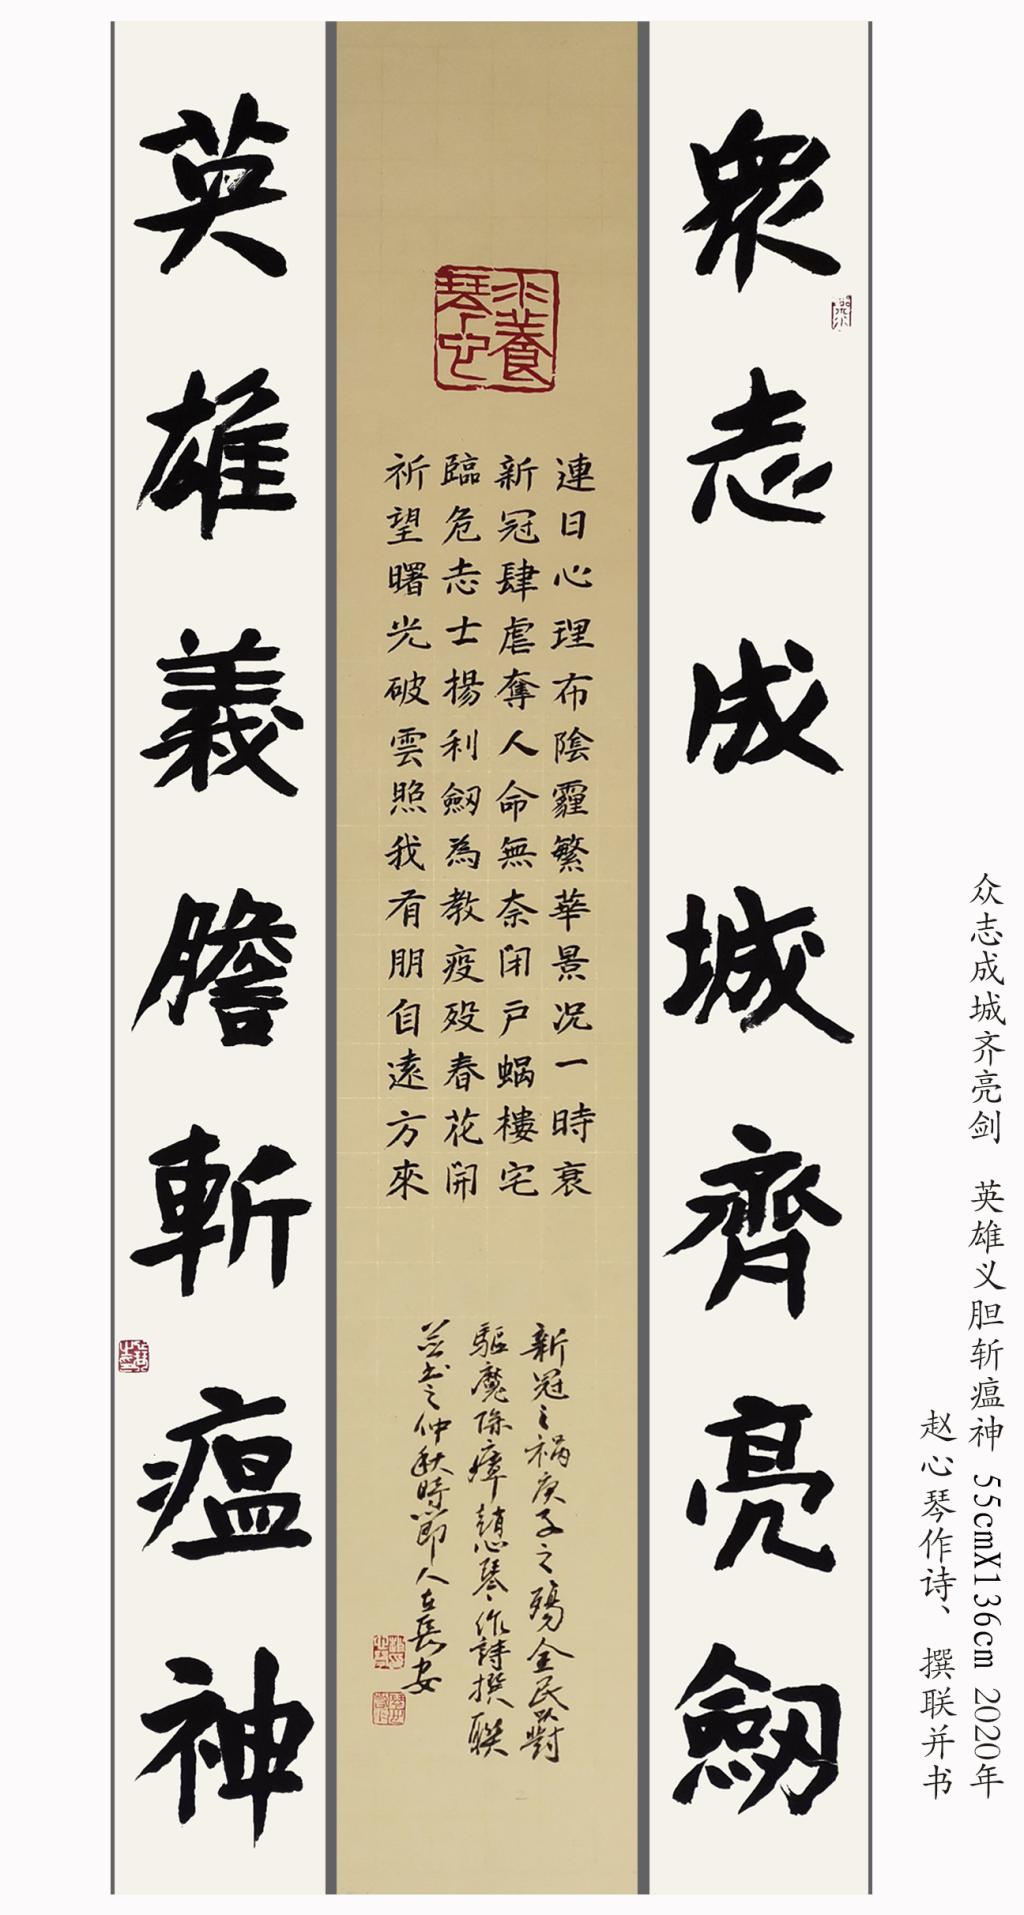 眾志成城齊亮劒
連日心理布陰霾繁華景况一時衰
新冠肆虐奪人命無奈闭户蝸樓宅
臨危志士揚利劒為教疫殁春花開
祈望曙光破雲照我有朋自遠方來
新冠之禍庚子之殤全民對
驅魔除瘴趙心琴作詩撰聯
並书之仲秋時節人在長安
英雄義膽斬瘟神
众志成城齐亮剑 英雄义胆斩瘟神 55cmX136cm 2020年
赵心琴作诗、撰联并书